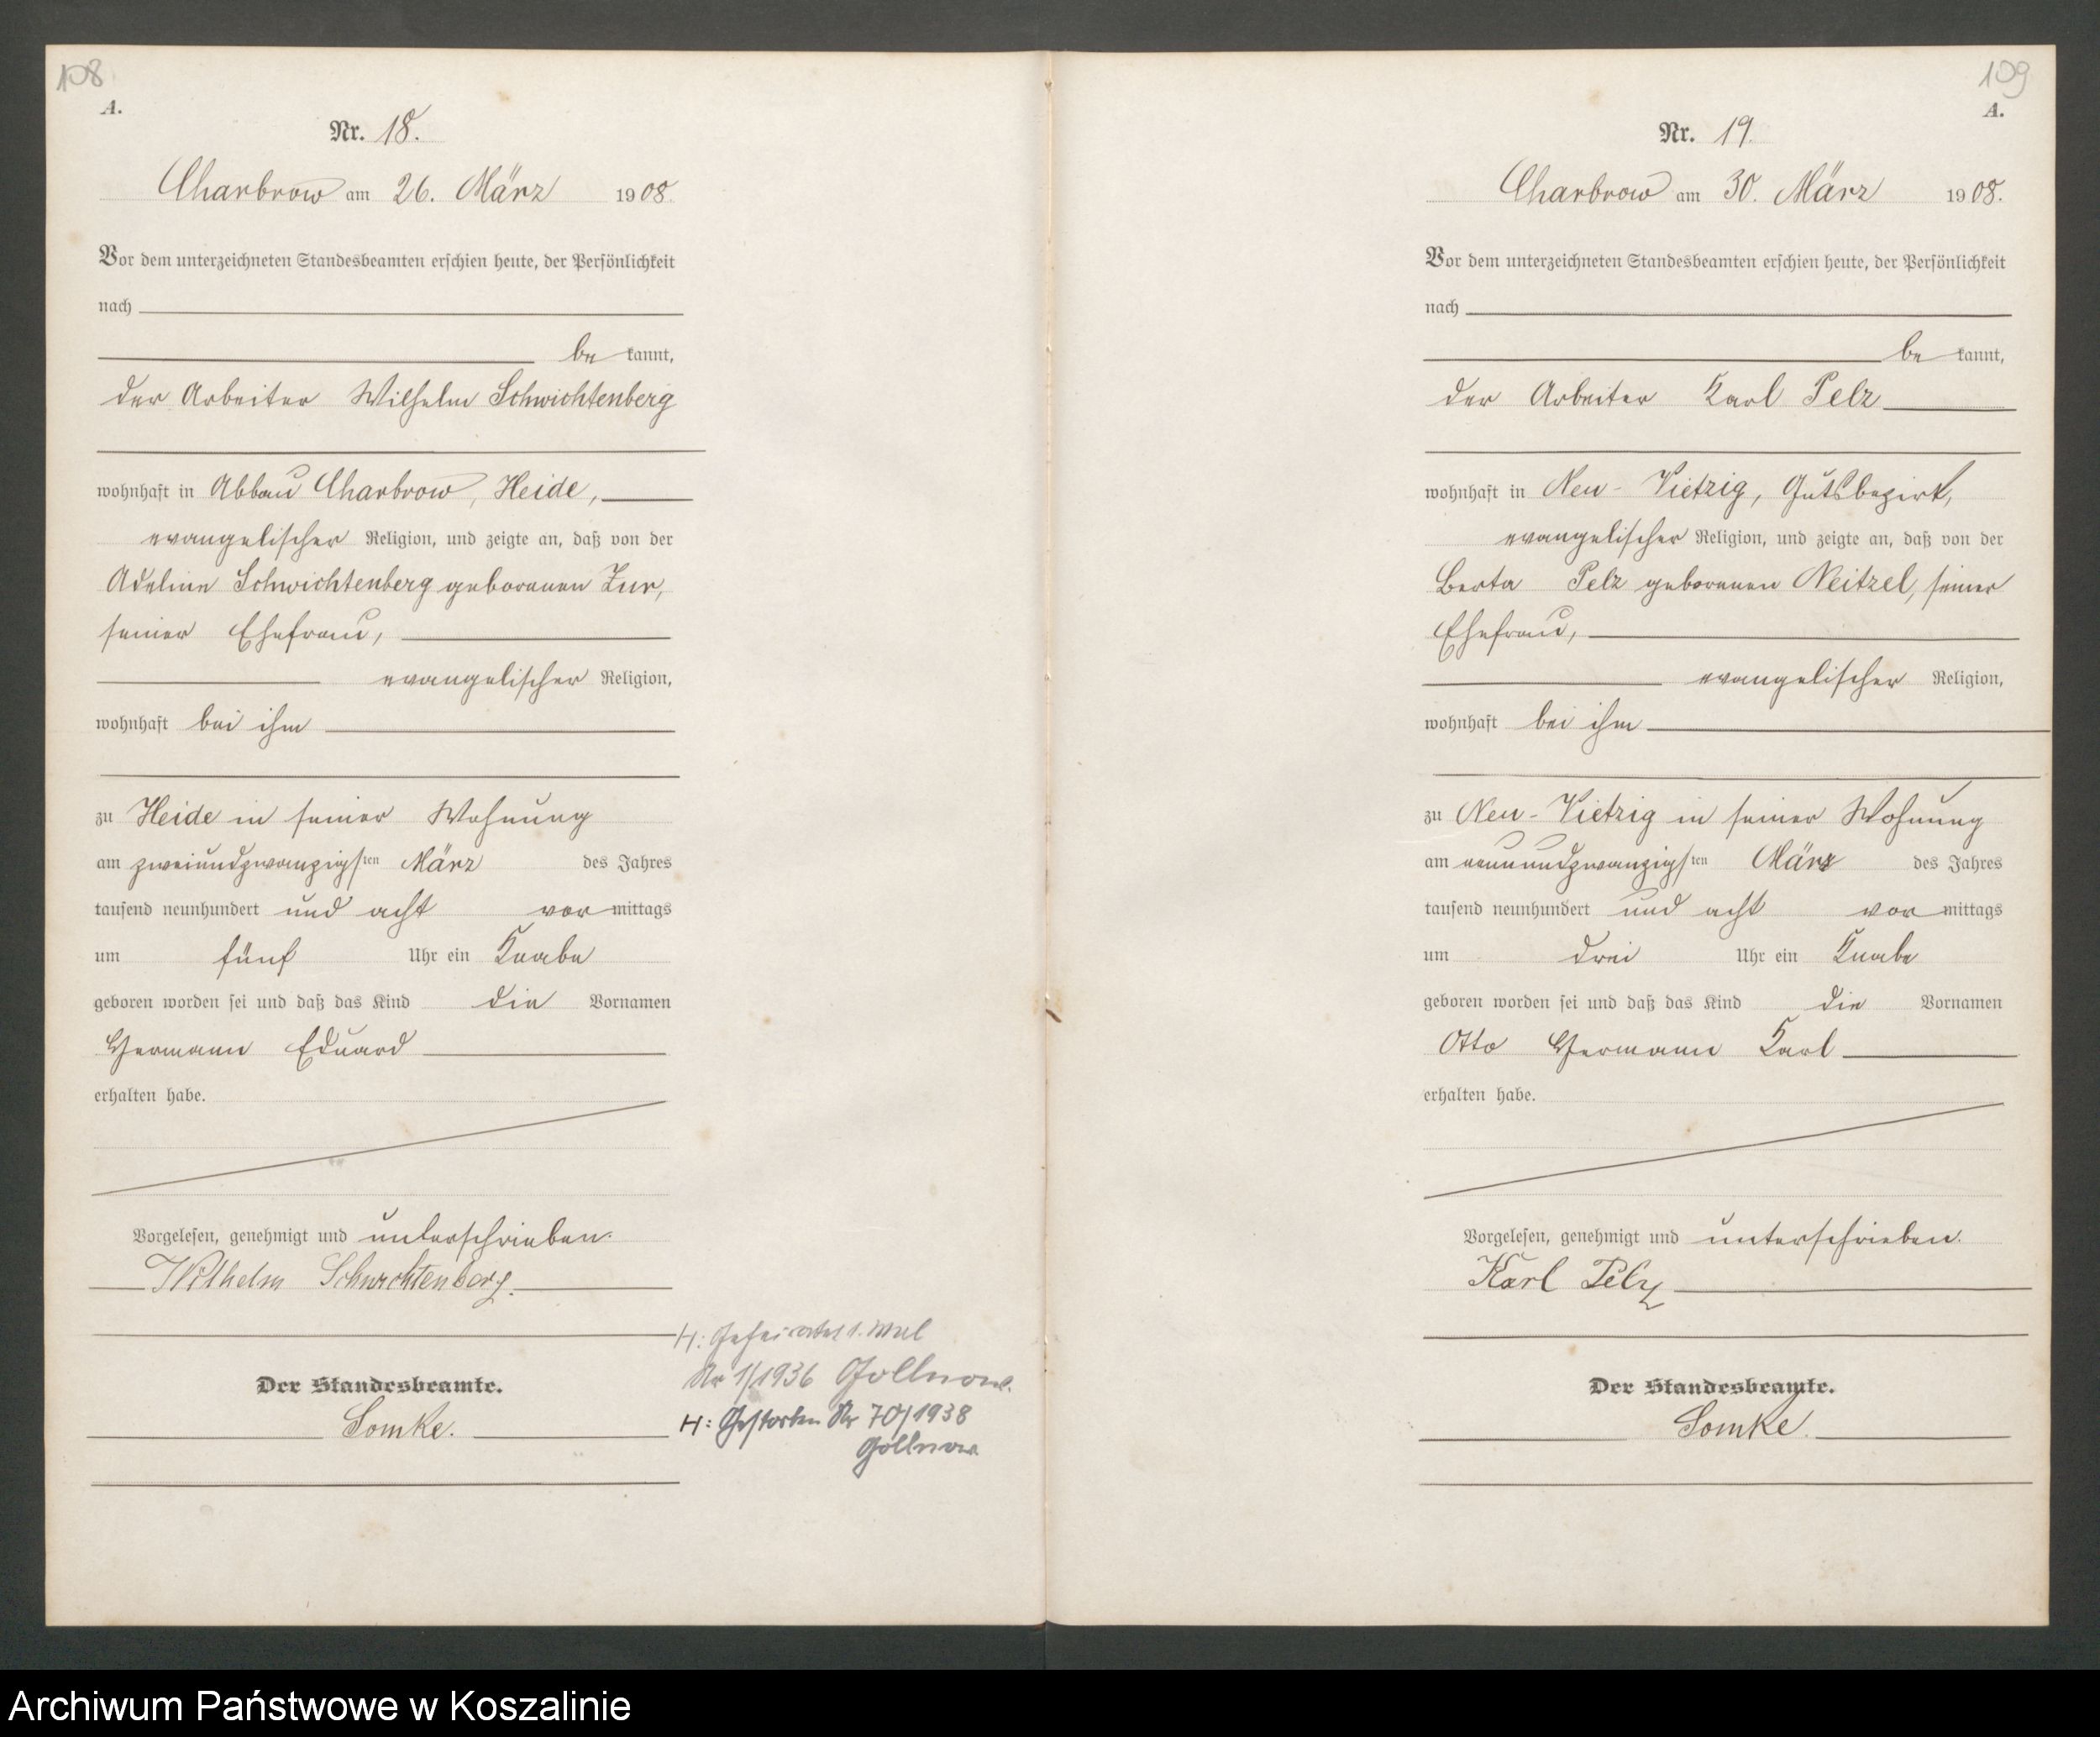 108
A.
Nr. 18.
Charbrow am 26. März 1908.
Vor dem unterzeichneten Standesbeamten erschien heute, der Persönlichkeit
nach
be kannt,
der Arbeiter Wilhelm Schwichtenberg
wohnhaft in Abbau Charbrow, Heide,
evangelischer Religion, und zeigte an, daß von der
Adeline Schwichtenberg geborenen Zur,
seiner Ehefrau,
evangelischer Religion,
wohnhaft bei ihm
zu Heide in seiner Wohnung
am zweiundzwanzigsten März des Jahres
tausend neunhundert und acht vor mittags
um fünf Uhr ein Knabe
geboren worden sei und daß das Kind die Vornamen
Hermann Eduard
erhalten habe.
Vorgelesen, genehmigt und unterschrieben.
Wilhelm Schwichtenberg.
Der Standesbeamte.
Somke.
H: Geheiratet 1. Mal
Nr 1/1936 Gollnow.
H: Gestorben Nr 70/1938
Gollnow
109
A.
Nr. 19.
Charbrow am 30. März 1908.
Vor dem unterzeichneten Standesbeamten erschien heute, der Persönlichkeit
nach
be kannt,
der Arbeiter Karl Pelz
wohnhaft in Neu-Vietzig, Gutsbezirk,
evangelischer Religion, und zeigte an, daß von der
Berta Pelz geborenen Neitzel, seiner
Ehefrau,
evangelischer Religion,
wohnhaft bei ihm
zu Neu-Vietzig in seiner Wohnung
am neunundzwanzigsten März des Jahres
tausend neunhundert und acht vor mittags
um drei Uhr ein Knabe
geboren worden sei und daß das Kind die Vornamen
Otto Hermann Karl
erhalten habe.
Vorgelesen, genehmigt und unterschrieben.
Karl Pelz
Der Standesbeamte.
Somke.
Archiwum Państwowe w Koszalinie